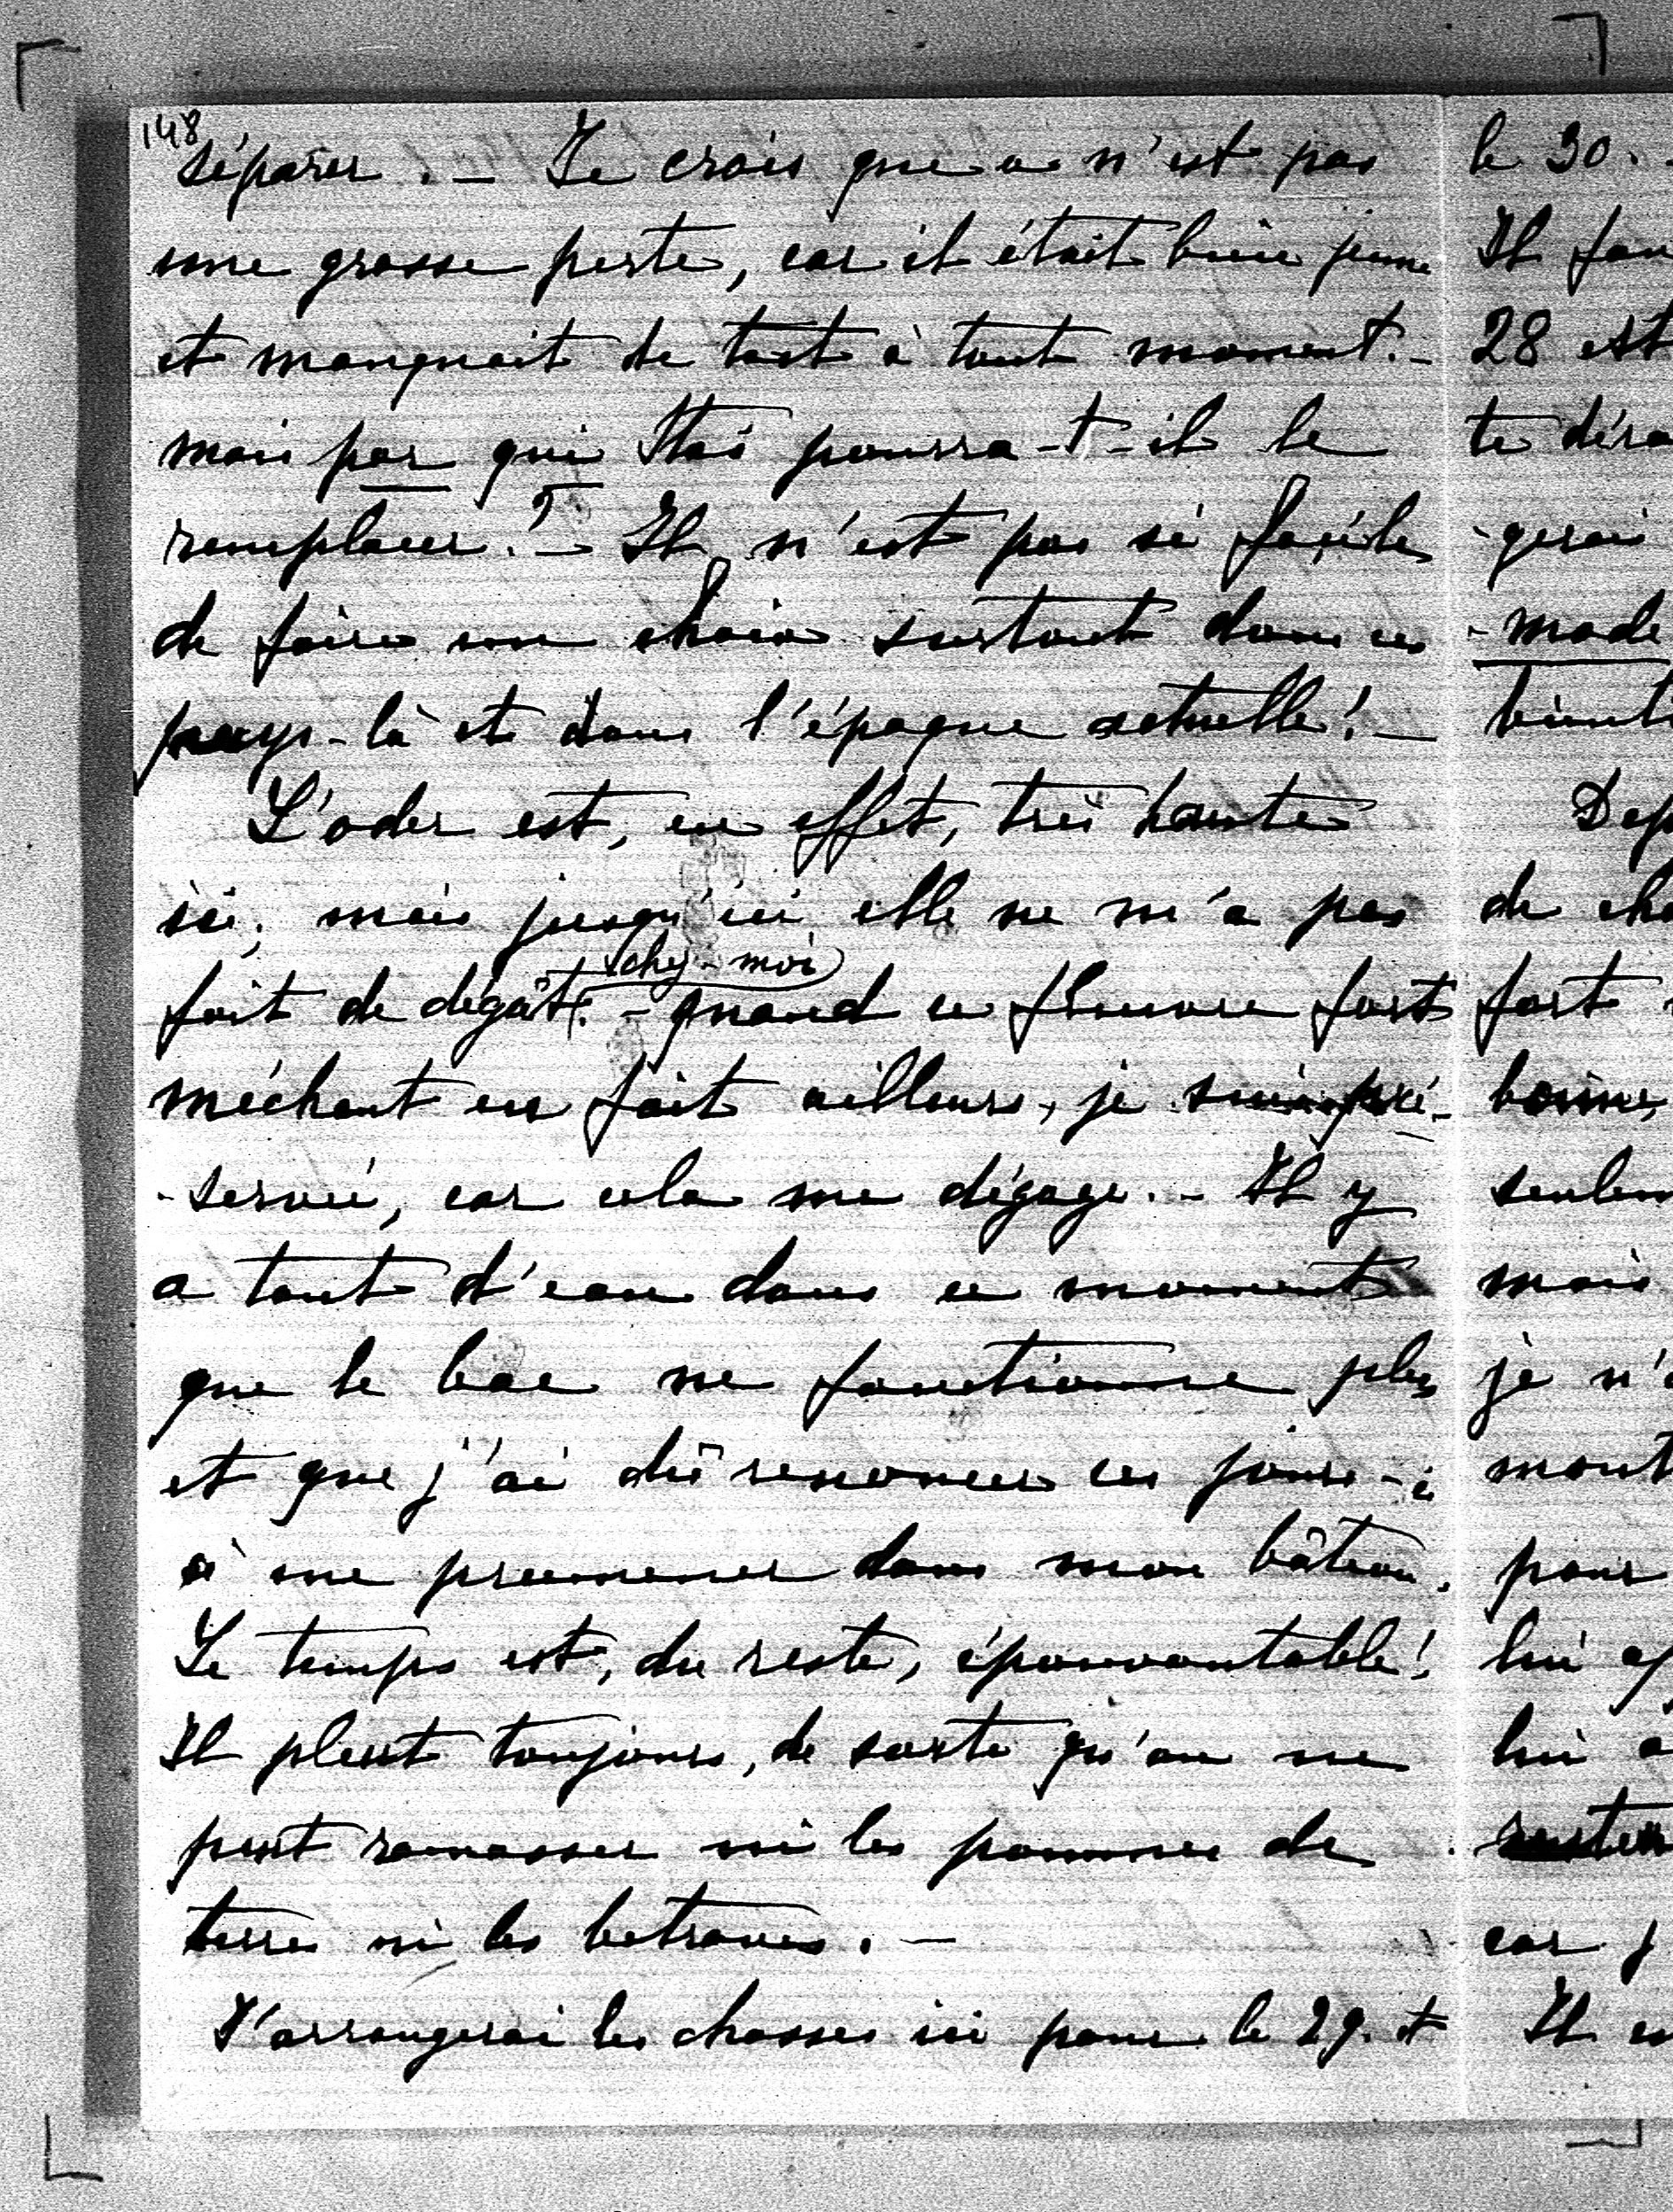 148
séparer. — Je crois que ce n'est pas
une grosse perte, car il était bien jeune
et manquait de tact à tout moment. -
mais par qui Stas pourra-t-il le
remplacer? — Il n'est pas si facile
de faire un choix surtout dans ces
pays-là et dans l'époque actuelle! —
L'oder est, en effet, très haute
ici; mais jusqu'ici elle ne m'a pas
chez-moi
fait de dégât. - quand ce fleuve fort
méchant en fait ailleurs, je suis pré-
-servé, car cela me dégage. - Il y
a tant d'eau dans ce moment
que le bac ne fonctionne plus
et que j'ai dû renoncer ces jours-ci
à me promener dans mon bâteau.
Le temps est, du reste, épouvantable!
Il pleut toujours, de sorte qu'on ne
peut ramasser ni les pommes de
terre ni les betraves. —
J'arrangerai les chasses ici pour le 29. et
le 30.
Il fau
28 et
te déra
-gerais
-mode
bient
Dep
de cha
fort
bonne,
seulem
mais
je n'a
mont
pour
lui
lui
car j
Il